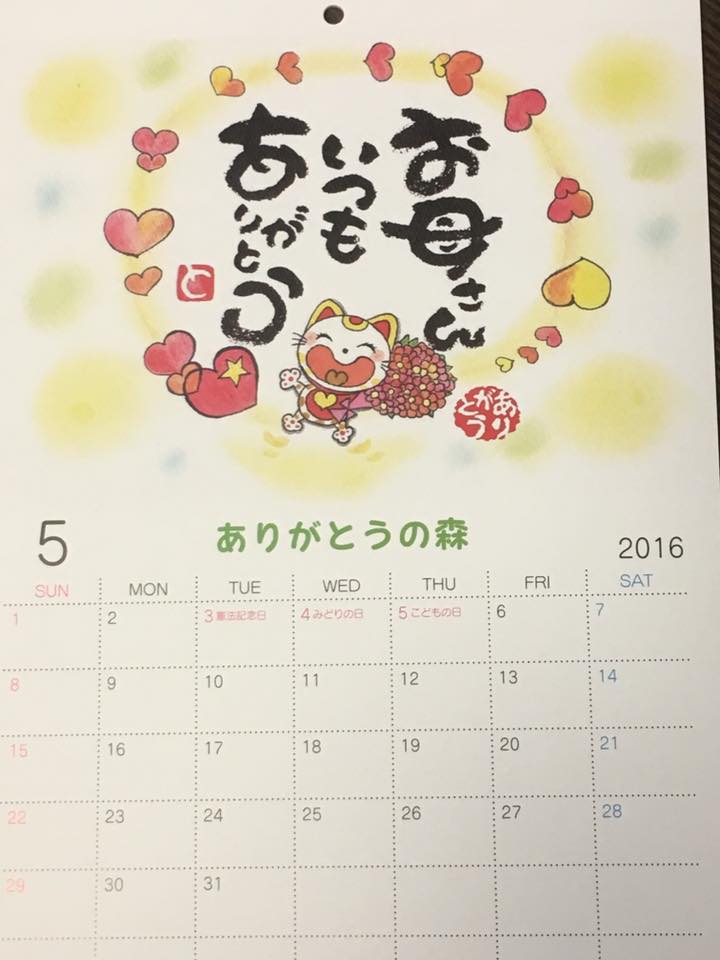 お母さん
いつも
ありがとう
と
ありがとう
5
ありがとうの森
2016
SUN MON TUE WED THU FRI SAT
1 2 3 憲法記念日 4 みどりの日 5 こどもの日 6 7
8 9 10 11 12 13 14
15 16 17 18 19 20 21
22 23 24 25 26 27 28
29 30 31